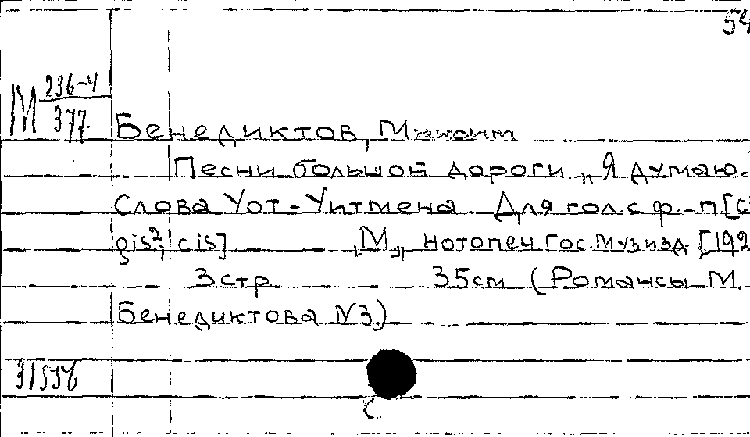 54
М 236-4
377
Бенедиктов, М
Песни большой дороги „Я думаю.
Слова Уот-Уитмена Для гол. с ф.-п [c
gis²; cis] „М„ нотопеч Гос. Музизд [192
3 стр 35см (Романсы М.
Бенедиктова N3.)